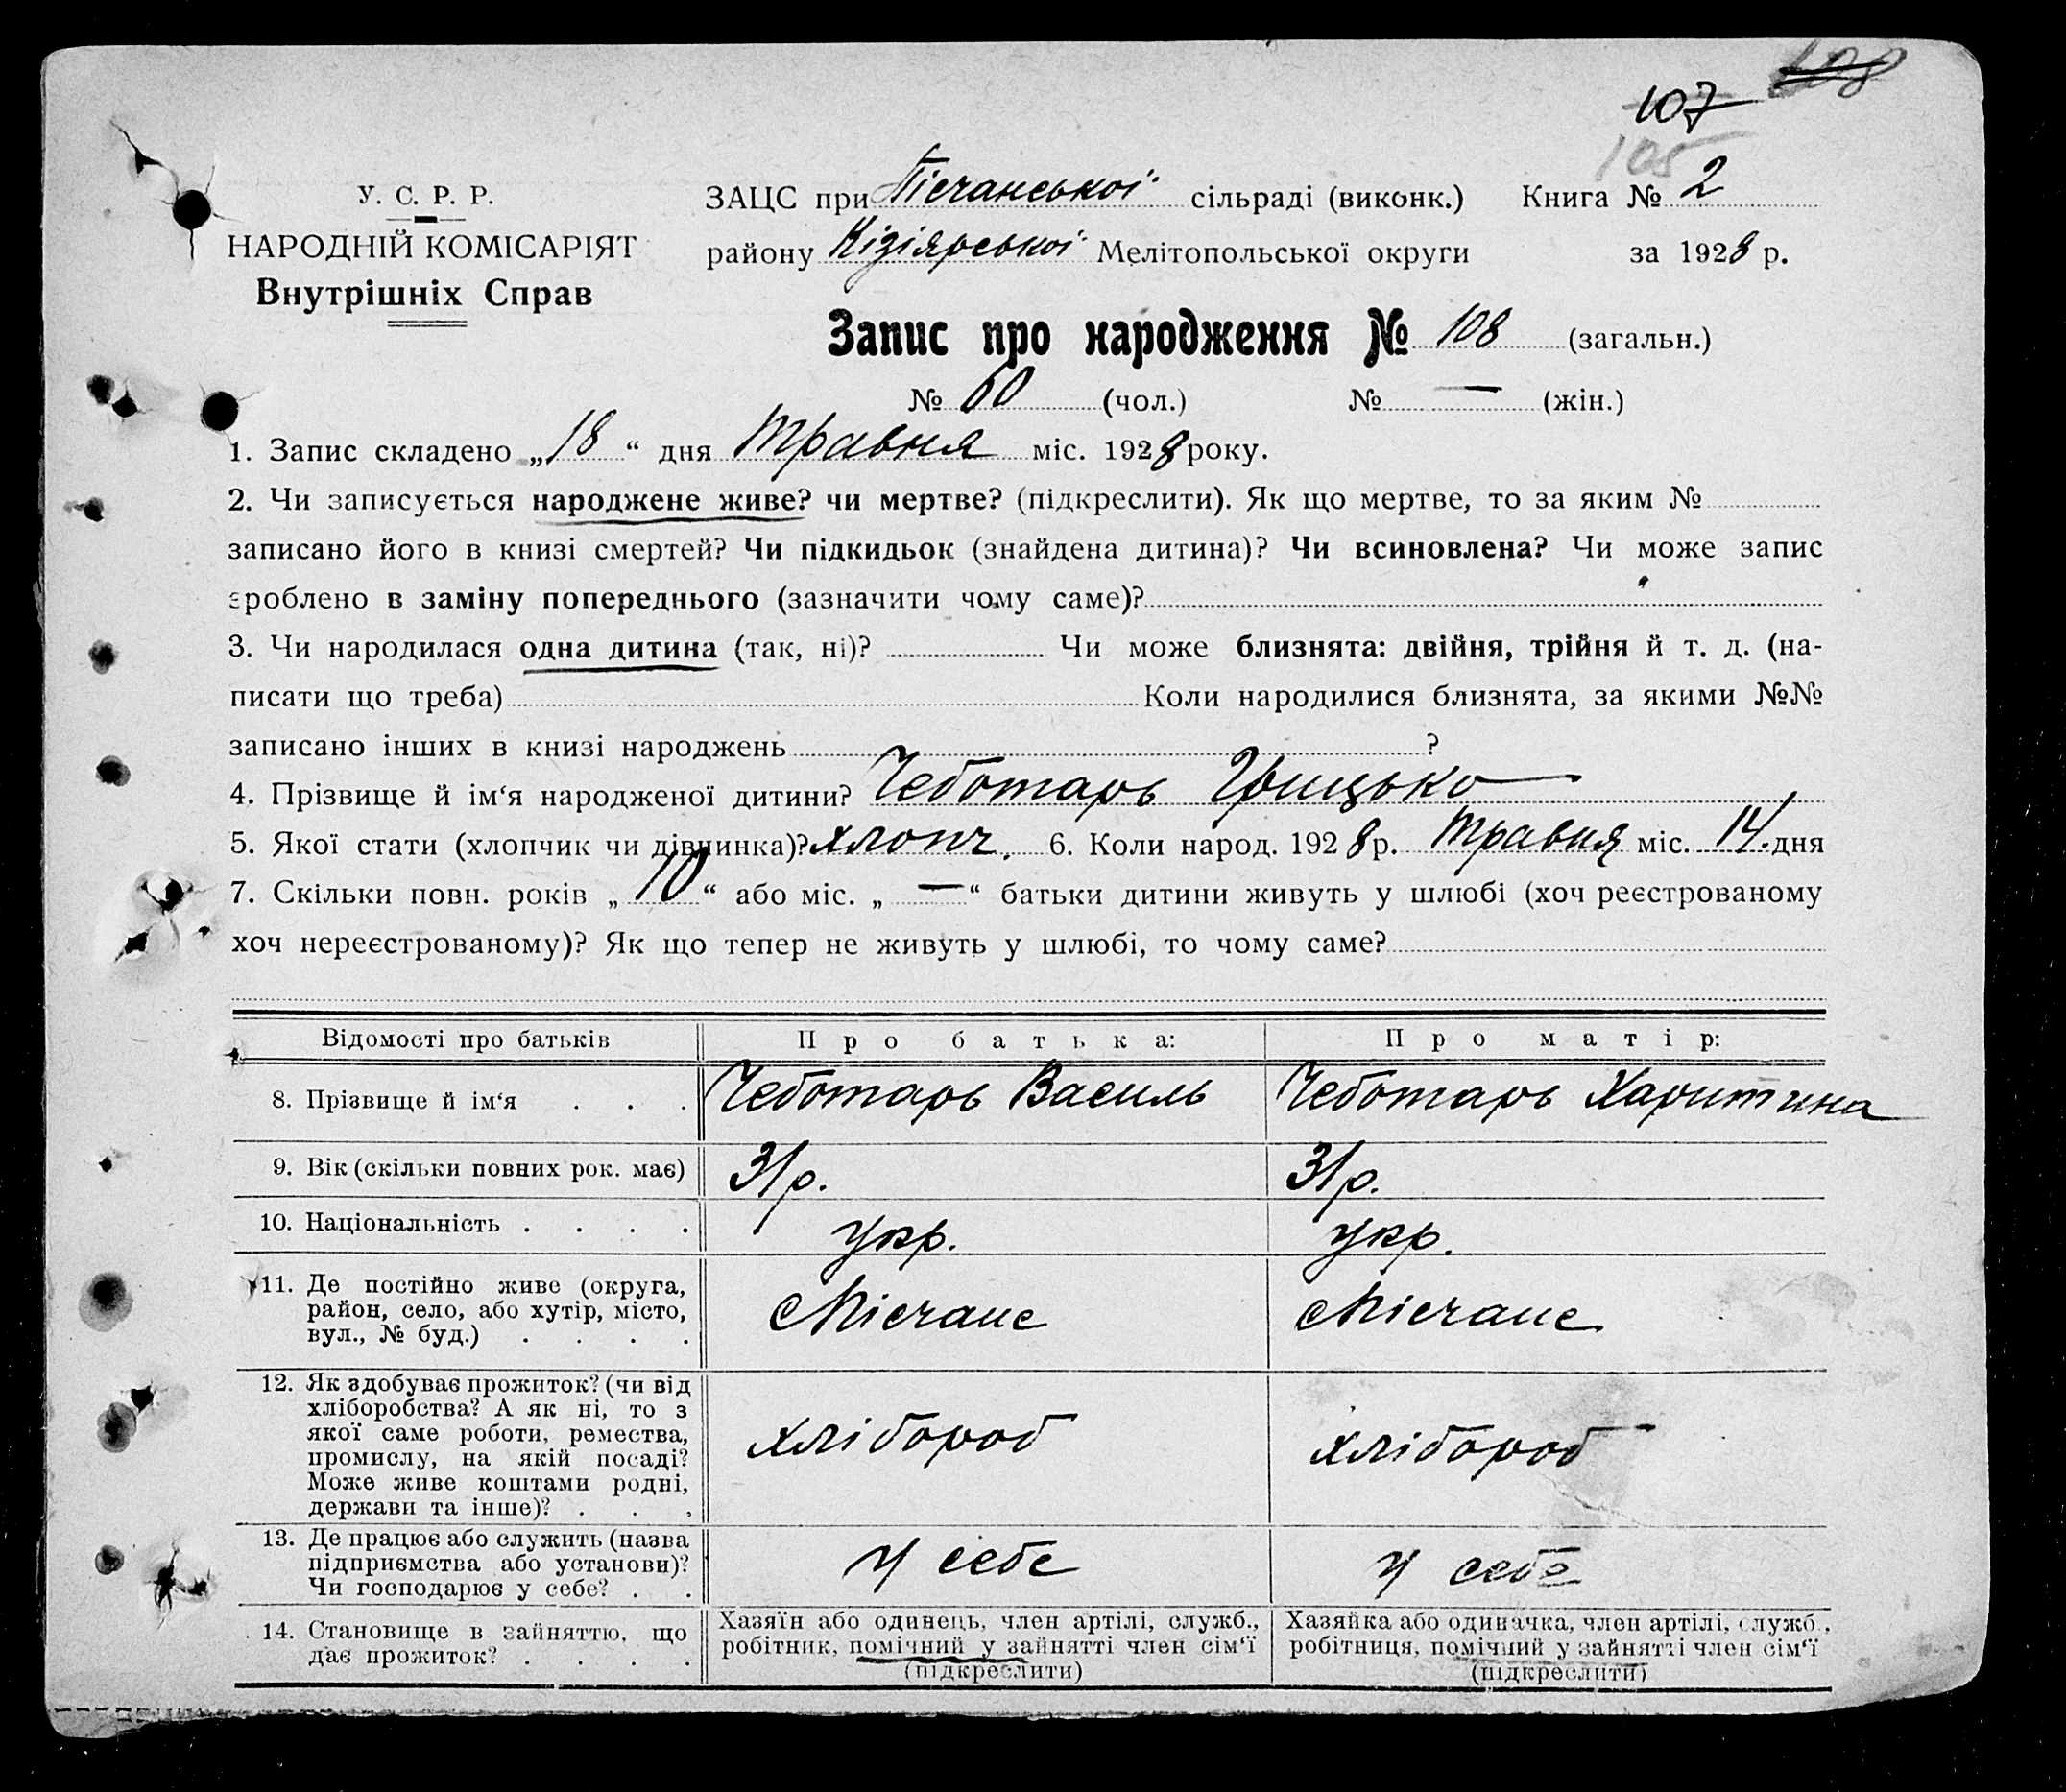 108
107
105
У. С. Р. Р.
НАРОДНІЙ КОМІСАРІЯТ
Внутрішніх Справ
ЗАЦС при Пісчанської сільраді (виконк.) Книга № 2
району Кізіярської Мелітопольської округи за 1928 р.
Запис про народження № 108 (загальн.)
№ 60 (чол.) № — (жін.)
1. Запис складено „18“ дня Травня міс. 1928 року.
2. Чи записується народжене живе? чи мертве? (підкреслити). Як що мертве, то за яким №
записано його в книзі смертей? Чи підкидьок (знайдена дитина)? Чи всиновлена? Чи може запис
зроблено в заміну попереднього (зазначити чому саме)?
3. Чи народилася одна дитина (так, ні)? Чи може близнята: двійня, трійня й т. д. (на-
писати що треба) Коли народилися близнята, за якими №№
записано інших в книзі народжень ?
4. Прізвище й ім‘я народженої дитини? Чеботарь Грицько
5. Якої стати (хлопчик чи дівчинка)? хлопч. 6. Коли народ. 1928 р. Травня міс. 14. дня
7. Скільки повн. років „10“ або міс. „—“ батьки дитини живуть у шлюбі (хоч реєстрованому
хоч нереєстрованому)? Як що тепер не живуть у шлюбі, то чому саме?
Відомості про батьків Про батька: Про матір:
8. Прізвище й ім‘я . . . Чеботарь Василь Чеботарь Харитина
9. Вік (скільки повних рок. має) 31р. 31р.
10. Національність . . . . укр. укр.
11. Де постійно живе (округа,
район, село, або хутір, місто,
вул., № буд.) . . . . Пісчане Пісчане
12. Як здобуває прожиток? (чи від
хліборобства? А як ні, то з
якої саме роботи, ремества,
промислу, на якій посаді?
Може живе коштами родні,
держави та інше)? . . . хлібороб хлібороб
13. Де працює або служить (назва
підприємства або установи)?
Чи господарює у себе? . . у себе у себе
14. Становище в зайняттю, що
дає прожиток? . . . .
Хазяїн або одинець, член артілі, служб.,
робітник, помічний у зайнятті член сім‘ї
(підкреслити)
Хазяйка або одиначка, член артілі, служб.,
робітниця, помічний у зайнятті член сім‘ї
(підкреслити)